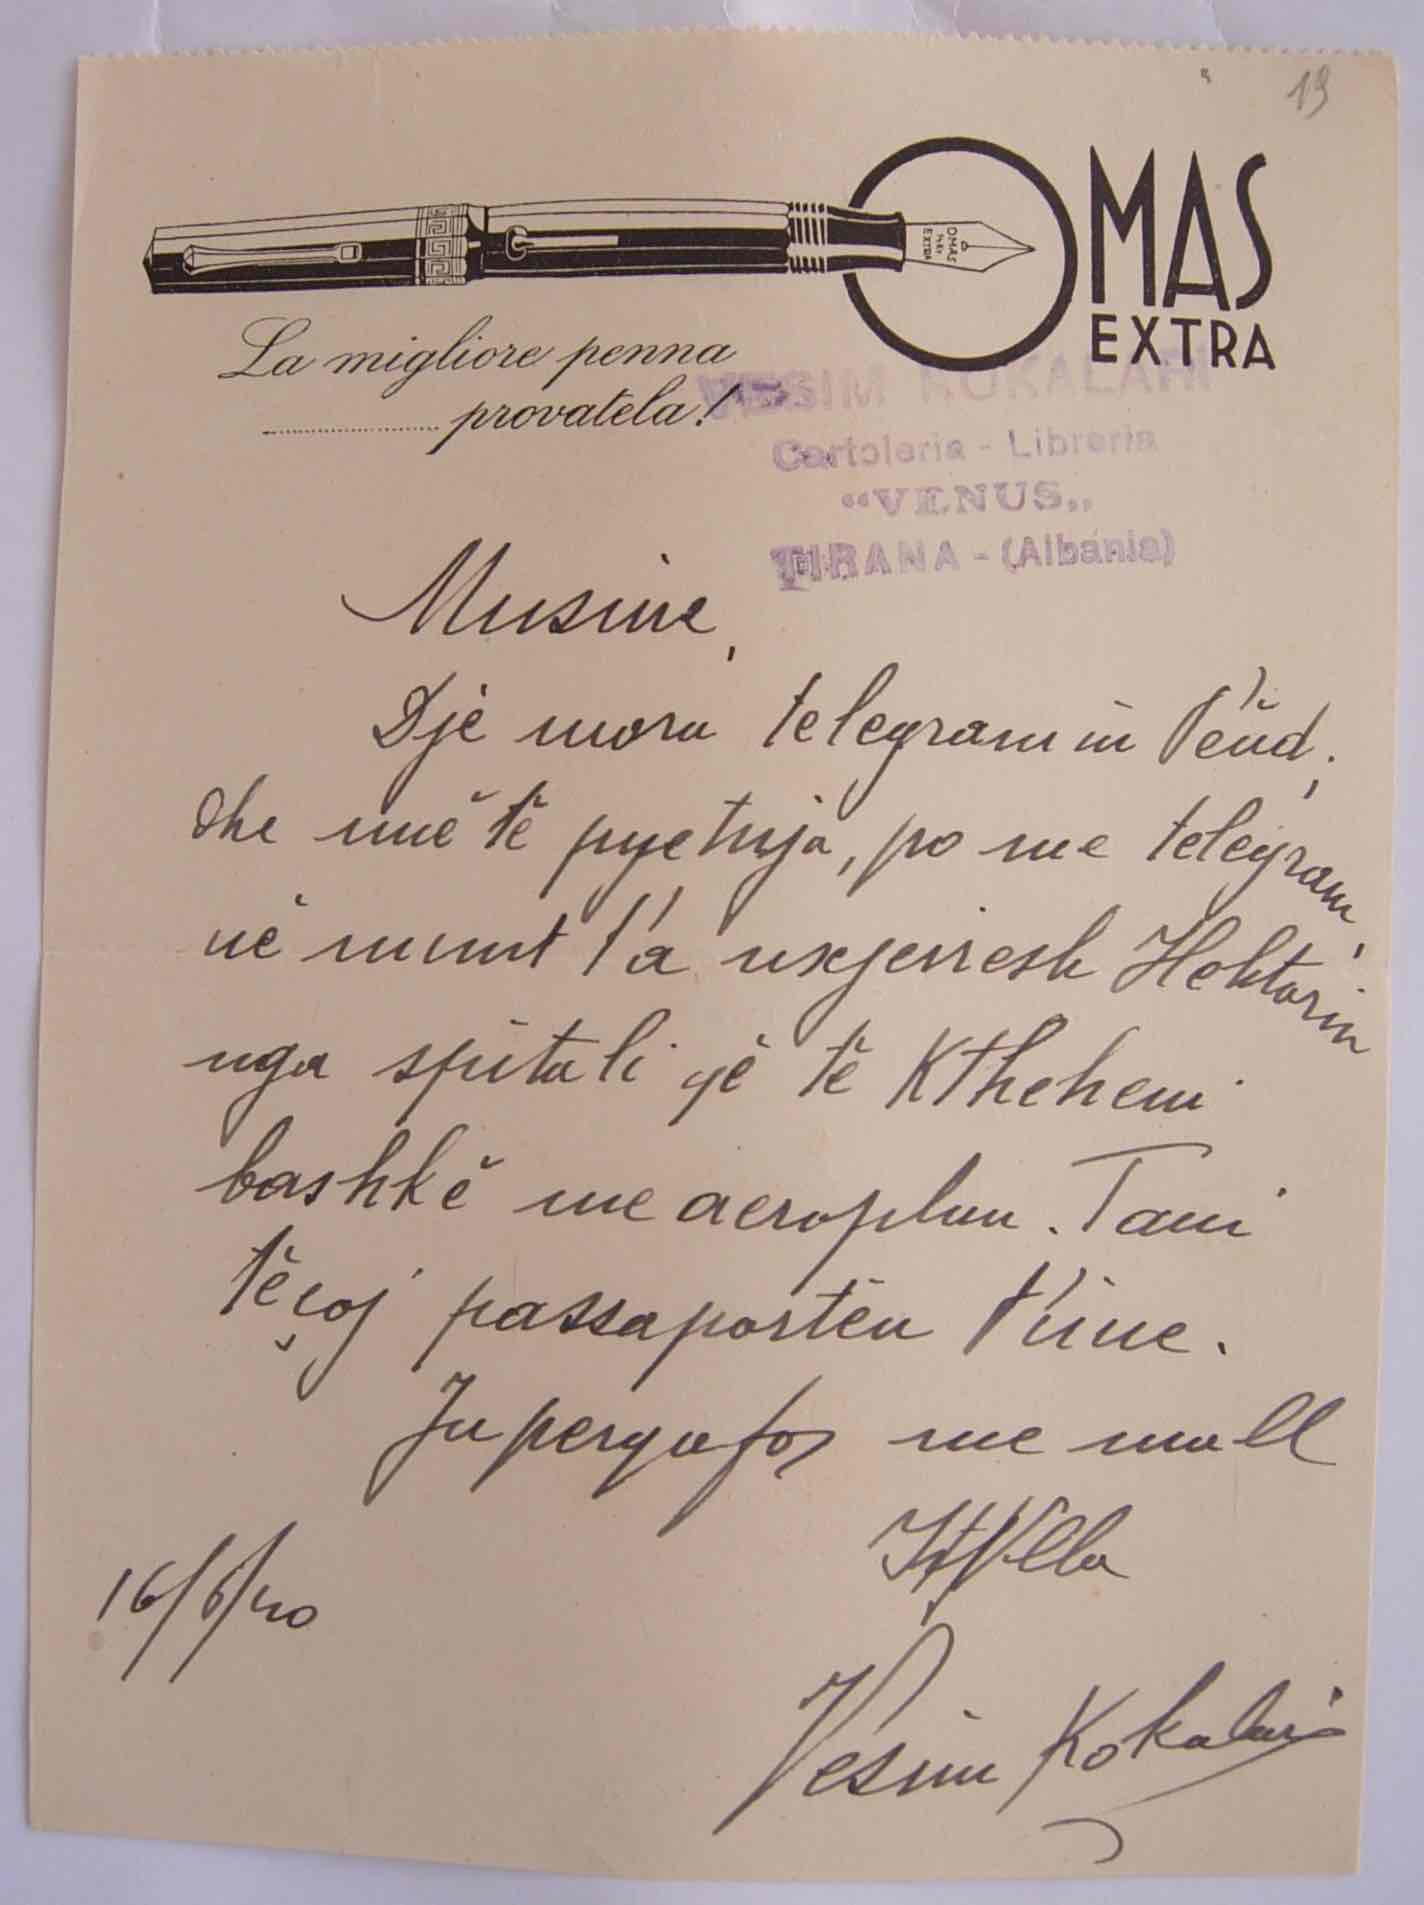 19
OMAS
EXTRA
OMAS
EXTRA
La migliore penna
provatela!
VESIM KOKALARI
Cartoleria - Libreria
“VENUS„
TIRANA - (Albania)
Musine,
Dje mora telegramin t'ënd,
dhe unë të pyetnja, po me telegram,
në munt t'a nxjerresh Hektorin
nga spitali që të Kthehemi
bashkë me aeroplan. Tani
të çoj passaportën t'ime.
Ju pergafoj me mall
Yt Vlla
16/6/40
Vesim Kokalari